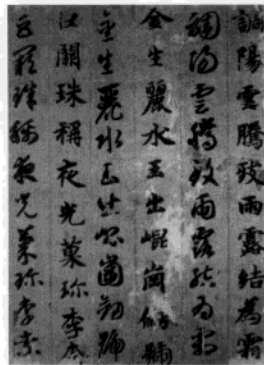 調陽雲騰致雨露結為霜
調陽雲騰致雨露結為霜
金生麗水玉出崐崗劍號
金生麗水玉出崐崗劍號
巨闕珠稱夜光菓珍李柰
巨闕珠稱夜光菓珍李柰